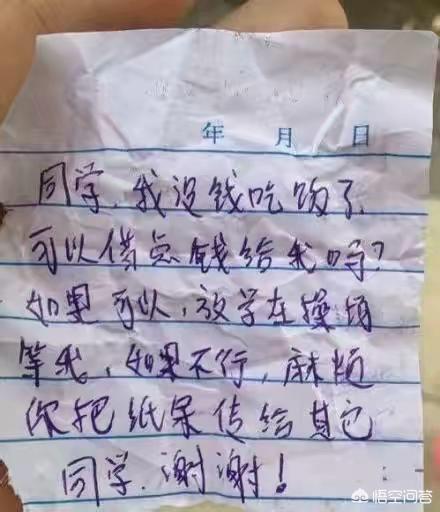 年 月 日
同学,我没钱吃饭了,
可以借点钱给我吗?
如果可以,放学在操场
等我,如果不行,麻烦
你把纸条传给其它
同学,谢谢!
悟空问答